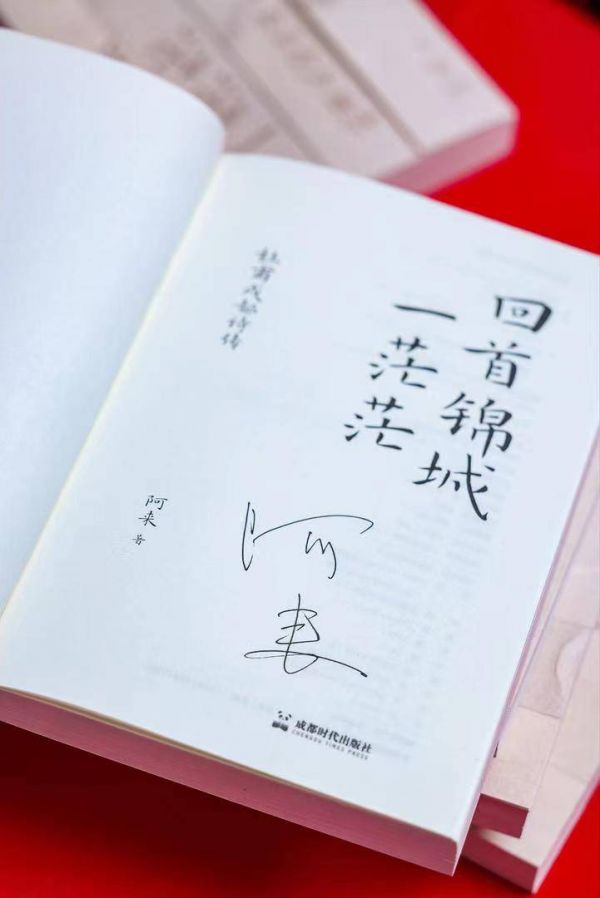 回首锦城
一茫茫
杜甫成都诗传
阿来 著
阿来
成都时代出版社
CHENGDU TIMES PRESS